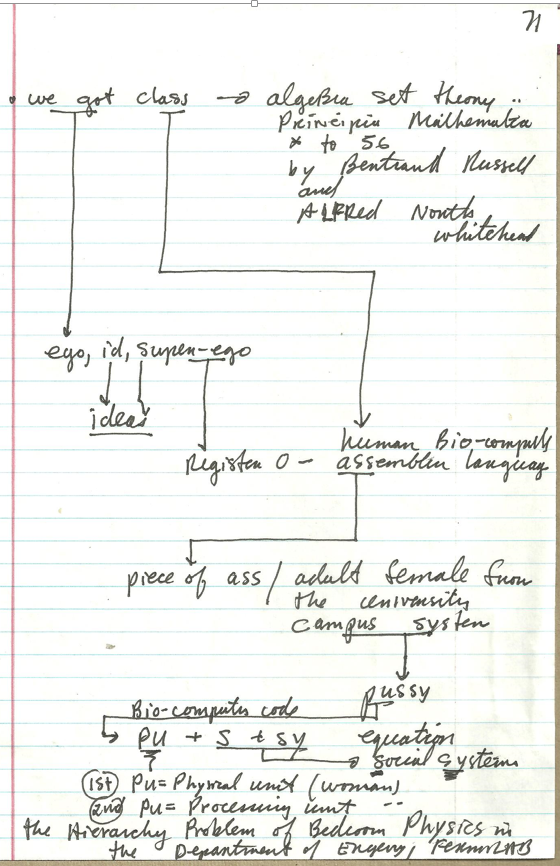 71
we got class → algebra set theory ..
Principia Mathematica
* to 56
by Bertrand Russell
and
Alfred North
whitehead
ego, id, super-ego
ideas
human Bio-computer
Register 0 - assembler language
piece of ass / adult female from
the university
campus system
pussy
Bio-computer code
PU + S + sy equation
social systems
1st PU = Physical unit (woman)
2nd PU = Processing unit --
the Hierarchy Problem of Bedroom Physics in
the Department of Energy, FermiLAB